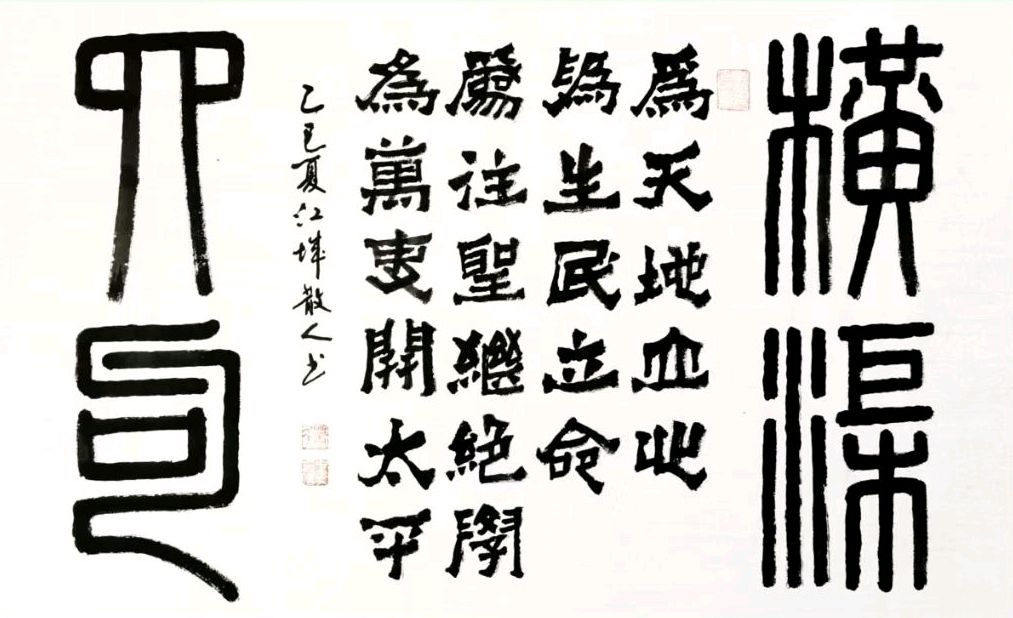 橫渠
爲天地立心
爲生民立命
爲往聖繼絕學
為萬世開太平
乙巳夏江城散人书
四句